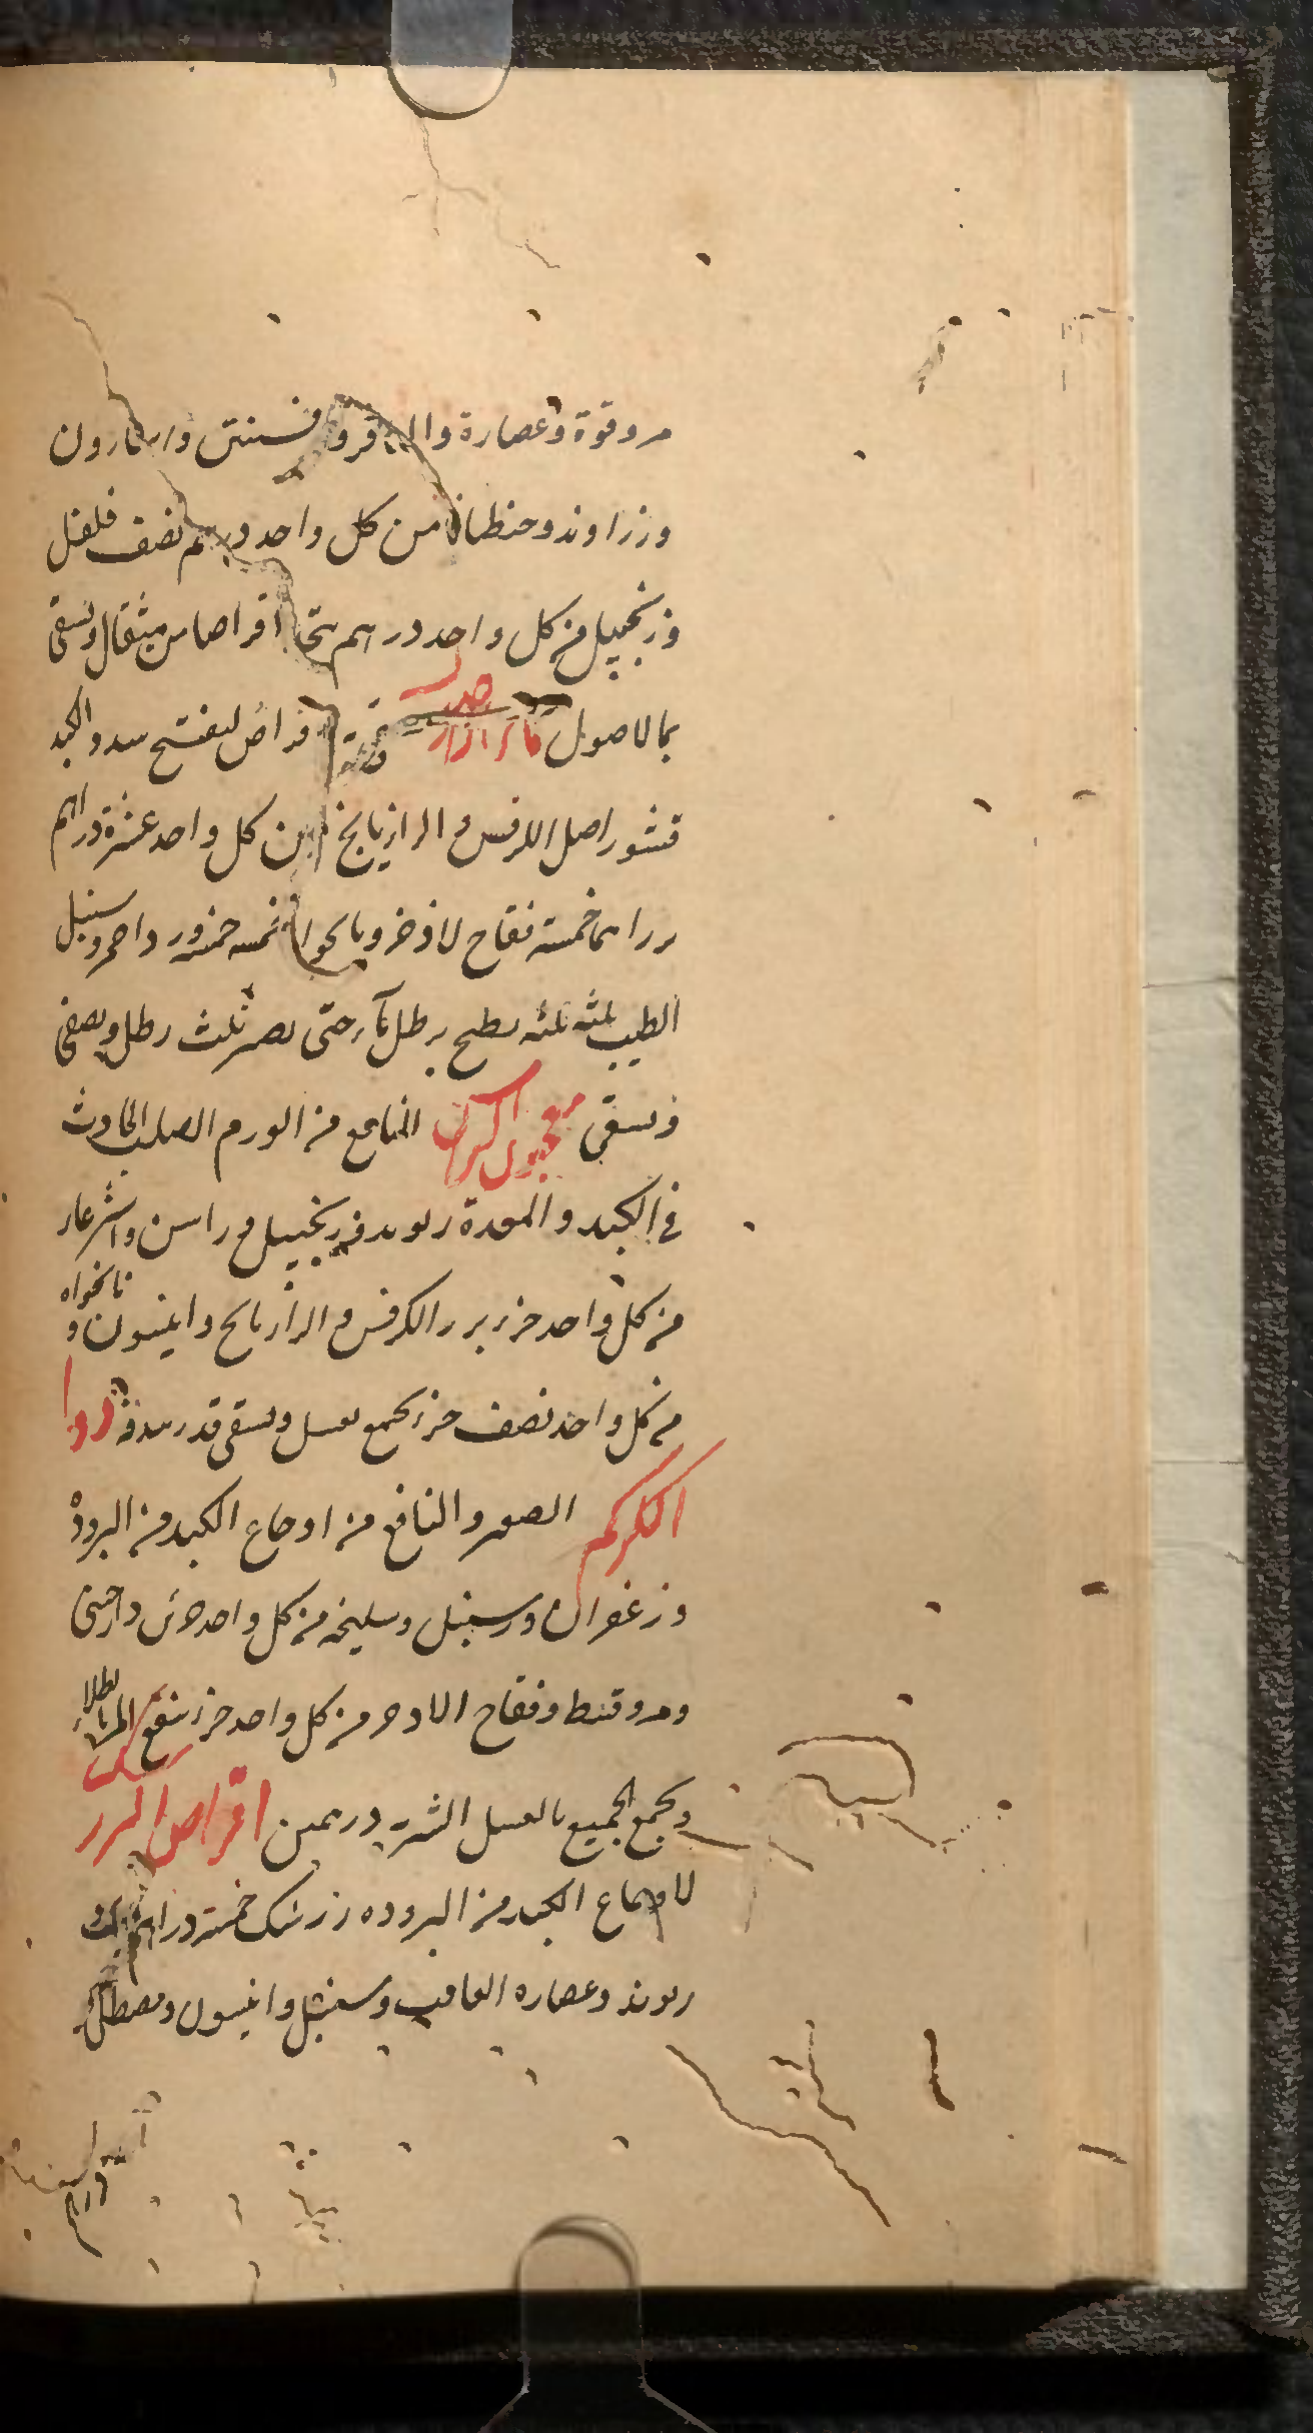 مر وقوة وعصارة والـ فسنتين واسارون
وزراوند وجنطيانا من كل واحد درهم نصف فلفل
وزنجبيل من كل واحد درهم يتخذ اقراصا من مثقال ويسقى
بما الاصول اقراص لتفتيح سدد الكبد
قشور اصل الكرفس و الرازيانج من كل واحد عشرة دراهم
بزراهما خمسة فقاح لاذخر خمسه خمسه ورد احمر وسنبل
الطيب ثلثه ثلثه يطبخ برطل ماء حتى يصير ثلث رطل ويصفى
ويسقى معجون النافع من الورم الصلب الحادث
في الكبد والمعدة ريوند وزنجبيل و راسن
من كل واحد جزء بزر الكرفس و الرازيانج وانيسون و نانخواه
من كل واحد نصف جزء يجمع بعسل ويسقى قدر بندقه دوا
الكركم الصغير والنافع من اوجاع الكبد من البرودة
وزعفران وسنبل وسليخه من كل واحد دارصيني
ومر وقسط وفقاح الاذخر من كل واحد جزء ينقع المر بالطلاء
ويجمع الجميع بالعسل الشربة درهمين اقراص
لاوجاع الكبد من البروده زرشك خمسة دراهم
ريوند وعصاره الغافت وسنبل وانيسون ومصطكى